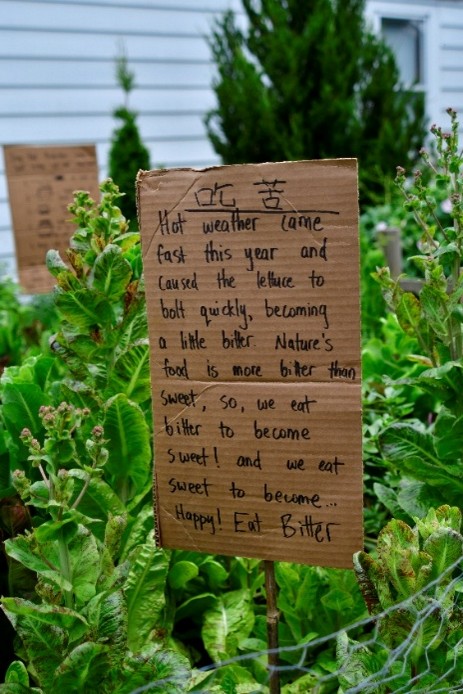 吃 苦
Hot weather came
fast this year and
caused the lettuce to
bolt quickly, becoming
a little bitter. Nature's
food is more bitter than
sweet, so, we eat
bitter to become
sweet! and we eat
sweet to become...
Happy! Eat Bitter